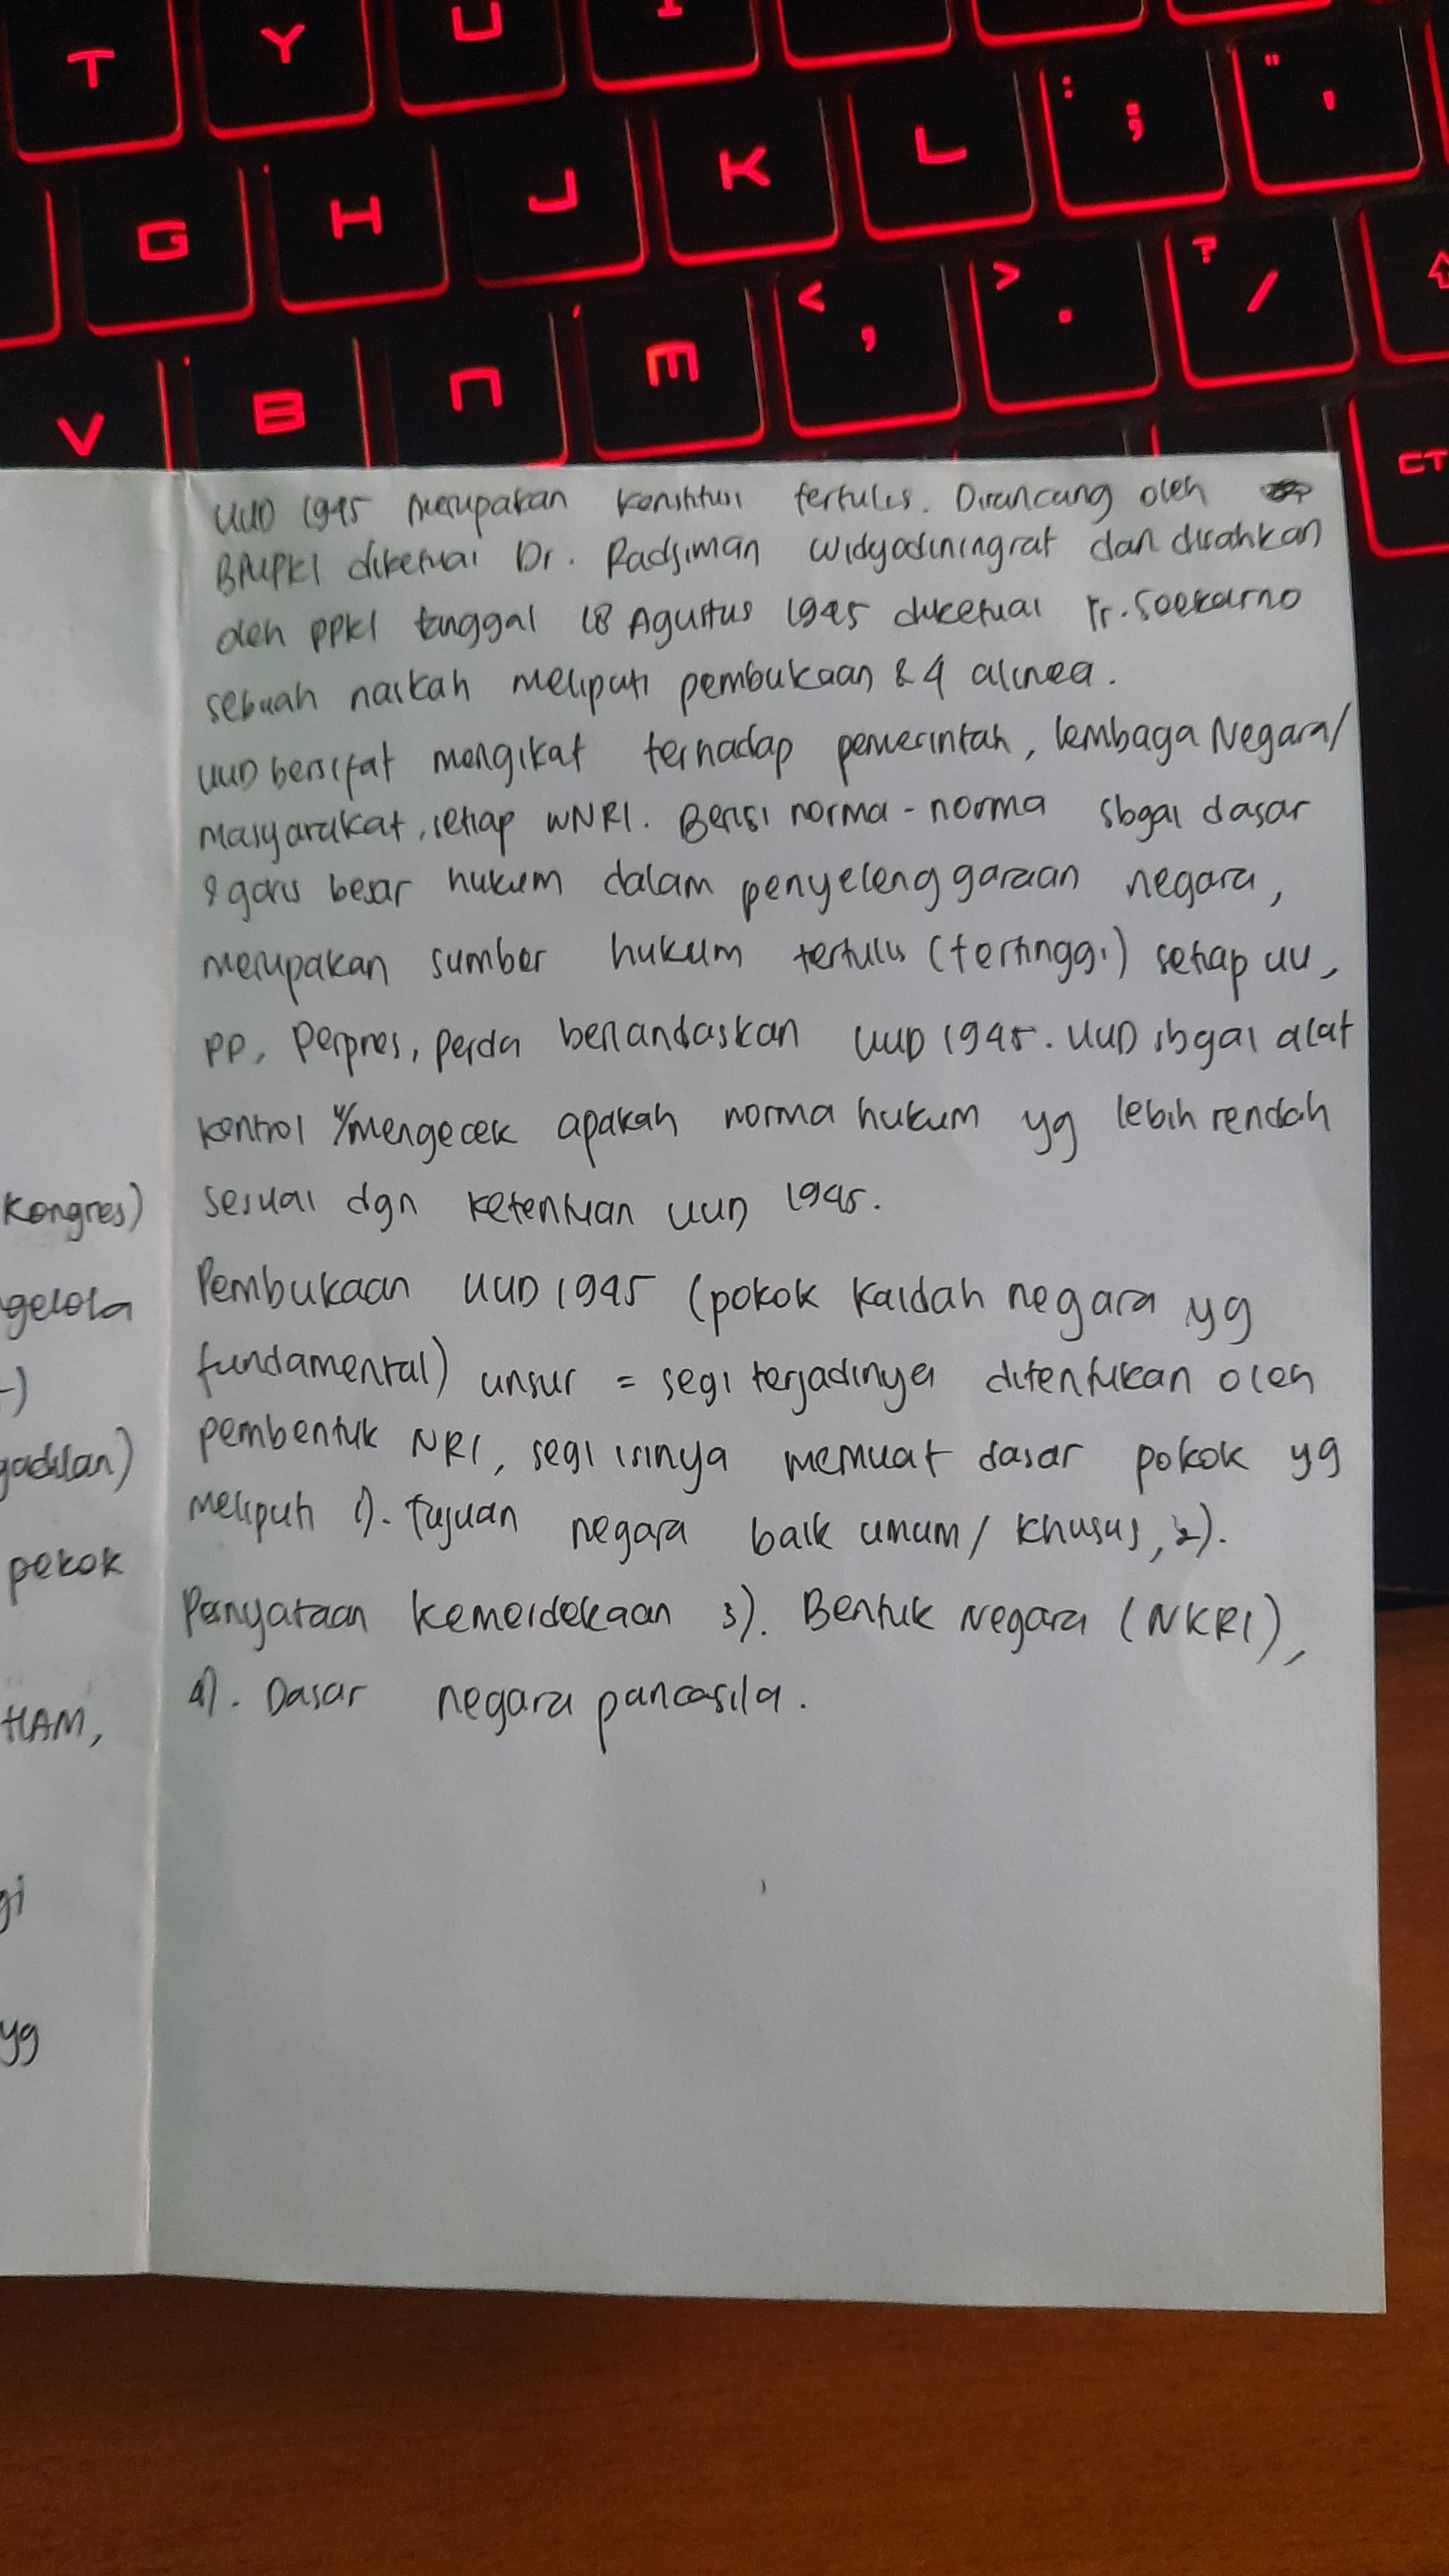 T Y U I
G H J K L : ; " '
V B N M < , > . ? /
CT
UUD 1945 merupakan konstitusi tertulis. Dirancang oleh
BPUPKI diketuai Dr. Radjiman Widyodiningrat dan disahkan
oleh PPKI tanggal 18 Agustus 1945 diketuai Ir. Soekarno
sebuah naskah meliputi pembukaan & 4 alinea.
UUD bersifat mengikat terhadap pemerintah, lembaga Negara/
masyarakat, setiap WNRI. Berisi norma-norma sbgai dasar
& garis besar hukum dalam penyelenggaraan negara,
merupakan sumber hukum tertulis (tertinggi) setiap UU,
PP, Perpres, perda berlandaskan UUD 1945. UUD sbgai alat
kontrol u/mengecek apakah norma hukum yg lebih rendah
sesuai dgn ketentuan UUD 1945.
Pembukaan UUD 1945 (pokok kaidah negara yg
fundamental) unsur = segi terjadinya ditentukan oleh
pembentuk NRI, segi isinya memuat dasar pokok yg
meliputi 1). Tujuan negara baik umum/ khusus, 2).
Pernyataan kemerdekaan 3). Bentuk Negara (NKRI),
4). Dasar negara pancasila.
Kongres)
gelola
)
gadilan)
pokok
HAM,
gi
yg